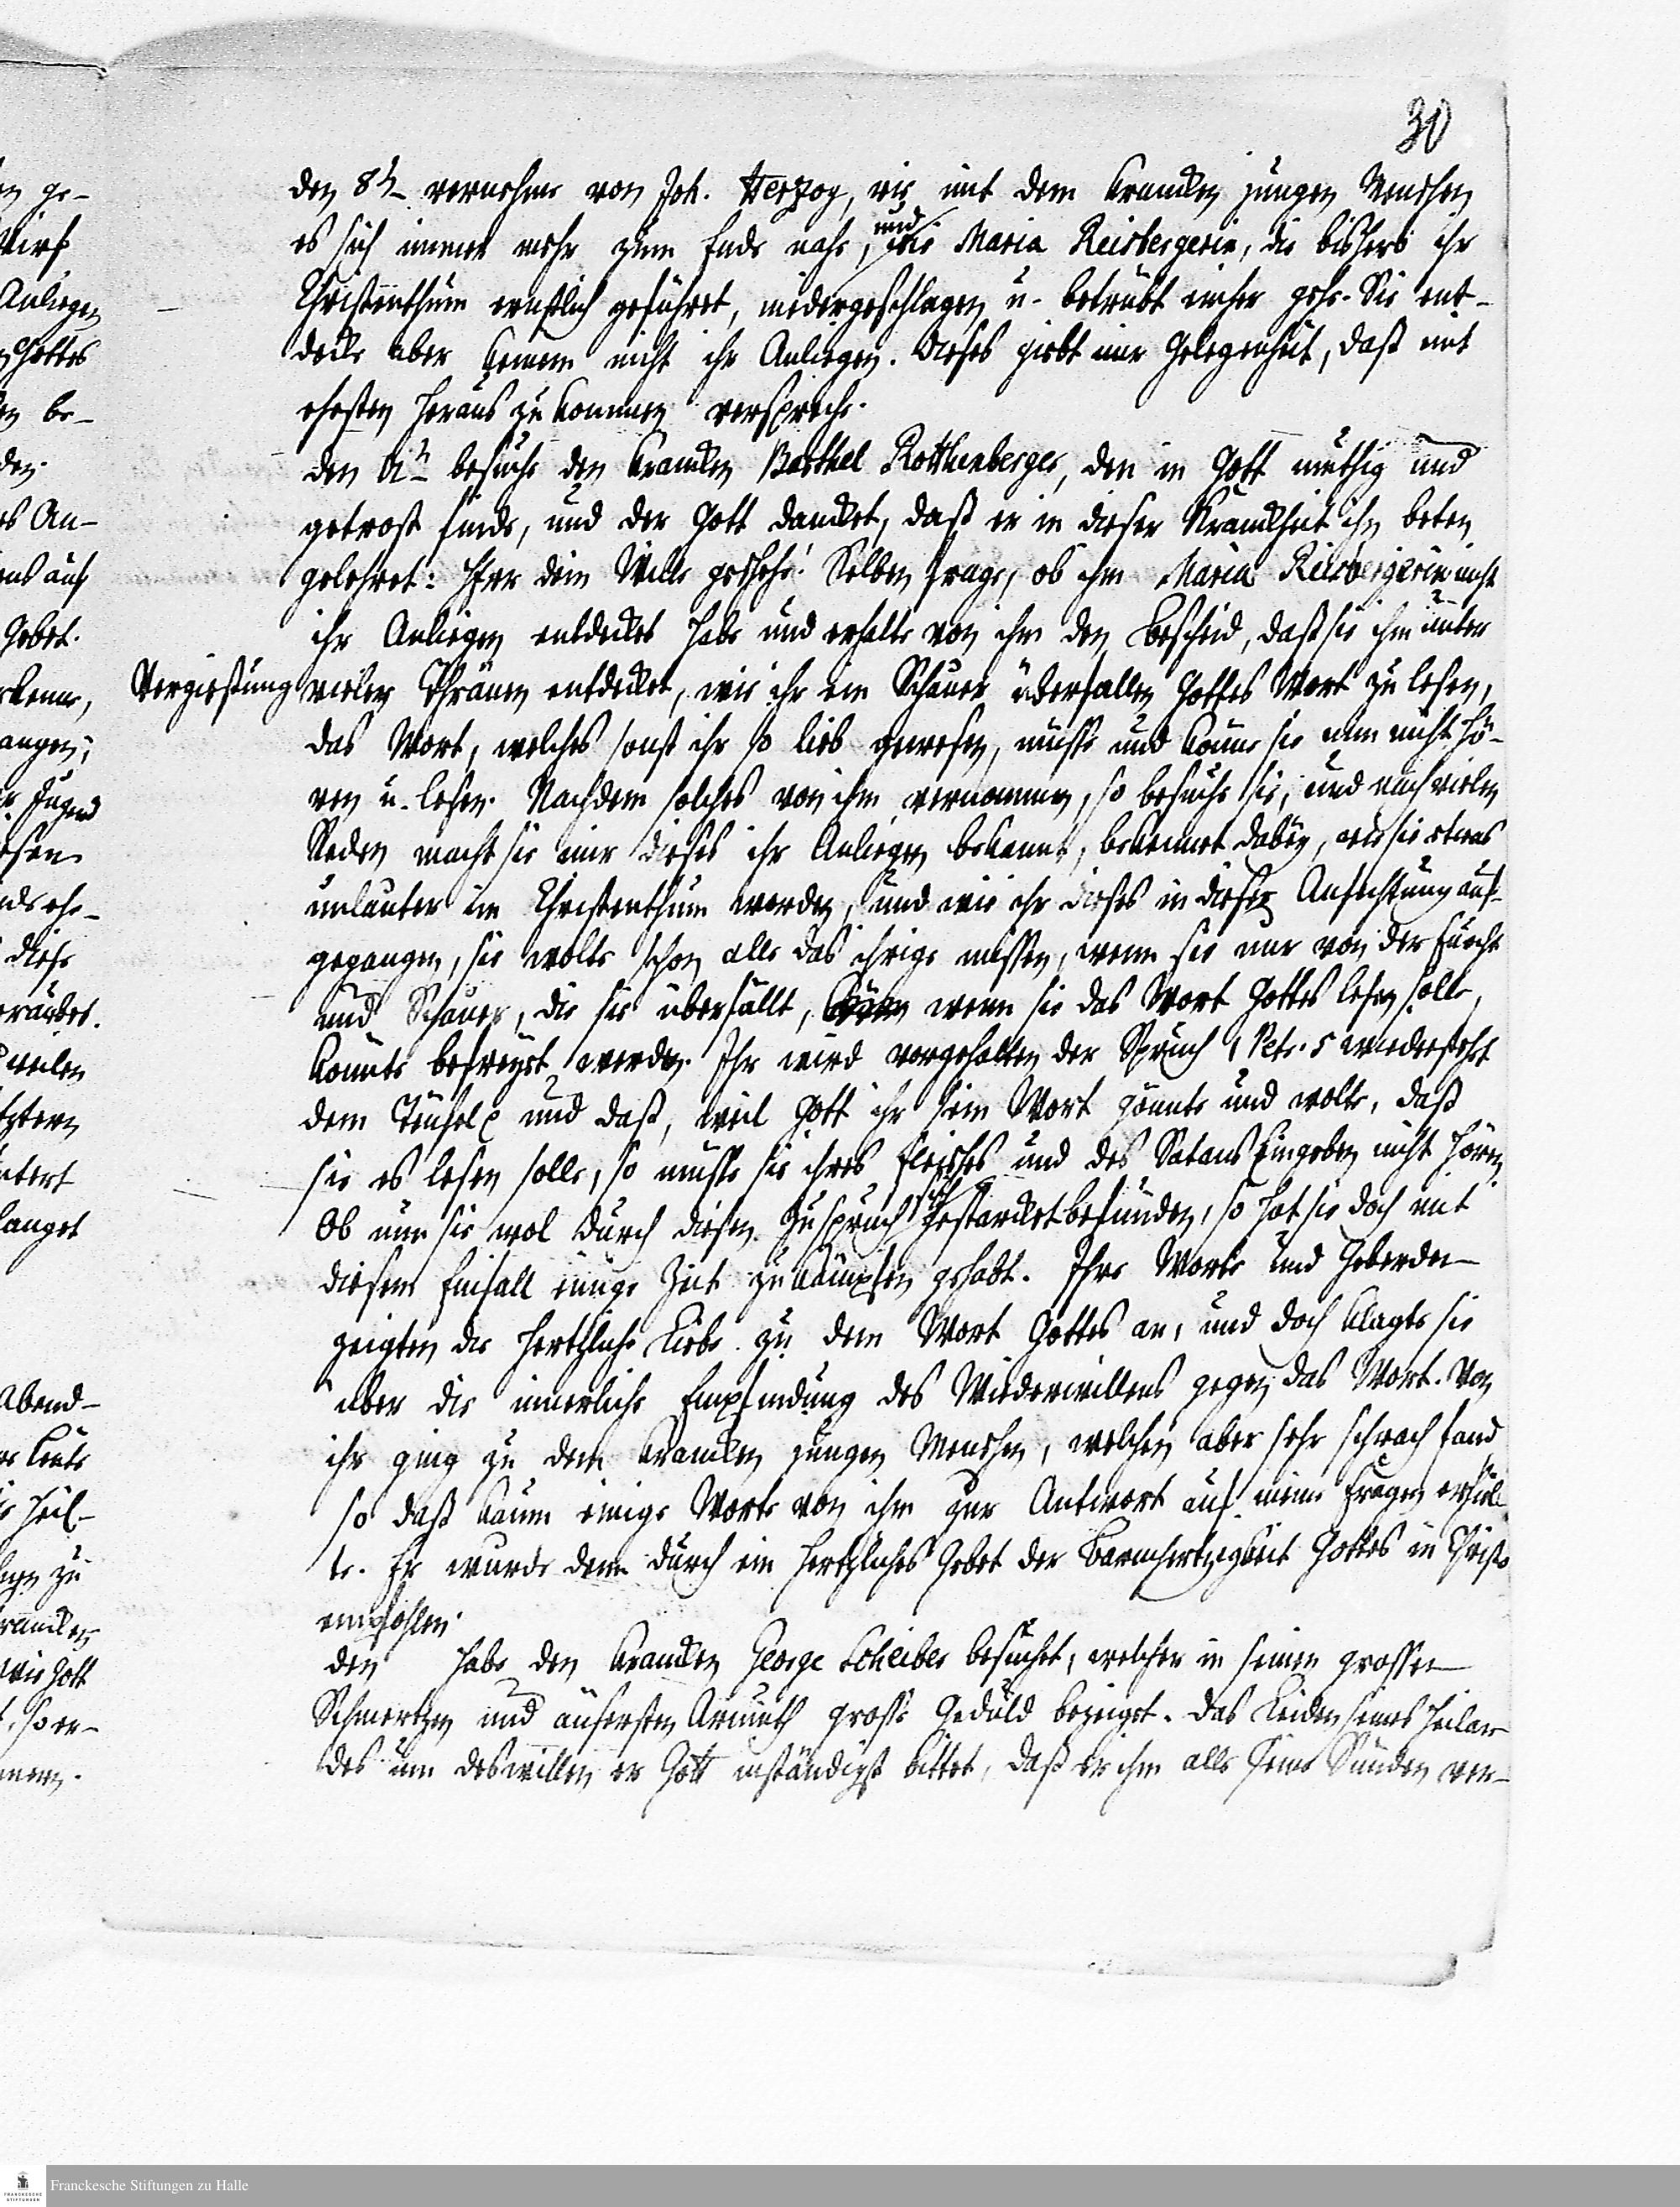 30
den 8t. vernehme von Joh. Herzog, wie mit dem krancken jungen Menschen
es sich immer mehr zum Ende nahe, und wie Maria Reisbergerin, die bishero ihr
Christenthum ernstlich geführet, niedergeschlagen u. betrübt einher gehe. Sie ent-
decke aber keinem nicht ihr Anliegen. Dieses giebt mir Gelegenheit, daß mit
ehesten heraus zu kommen verspreche.
den besuche den krancken Barthel Rotthenberger, den in Gott muthig und
getrost finde, und der Gott dancket, daß er in dieser Kranckheit ihn beten
gelehret: Herr dein Wille geschehe! Selben frage, ob ihm Maria Reisbergerin nicht
ihr Anliegen entdecket habe und erhalte von ihm den Bescheid, daß sie ihm unter
Vergiessung vieler Thränen entdecket, wie ihr ein Schauer überfallen Gottes Wort zu lesen,
das Wort, welches sonst ihr so lieb gewesen, müsse und könne sie nun nicht hö-
ren u. lesen. Nachdem solches von ihm vernommen, so besuche sie, und nach vielen
Reden macht sie mir dieses ihr Anliegen bekannt, bekennet dabey, wie sie etwas
unlauter im Christenthum worden, und wie ihr dieses in dieser Anfechtung auf-
gegangen, sie wolte schon alle das ihrige missen, wenn sie nur von der Furcht
und Schauer, die sie überfällt, wenn sie das Wort Gottes lesen solle,
könnte befreyet werden. Ihr wird vorgehalten der Spruch 1 Petr. 5 wiederstehet
dem Teufel und daß, weil Gott ihr sein Wort gönnte und wolte, daß
sie es lesen solle, so müsse sie ihres Fleisches und des Satans Eingeben nicht hören
Ob nun sie wol durch diesen Zuspruch sich gestärcket befunden, so hat sie doch mit
diesem Einfall einige Zeit zu kämpfen gehabt. Ihre Worte und Geberden
zeigten die hertzliche Liebe zu dem Wort Gottes an, und doch klagte sie
über die innerliche Empfindung des Wiederwillens gegen das Wort. Von
ihr ging zu dem krancken jungen Menschen, welchen aber sehr schwach fand
so daß kaum einige Worte von ihm zur Antwort auf meine Fragen erhiel-
te. Er wurde denn durch ein hertzliches Gebet der Barmhertzigkeit Gottes in Christo
empfohlen.
den habe den krancken George Scheiber besuchet, welcher in seinen grossen
Schmertzen und äusersten Armuth grosse Geduld bezeiget. Das Leiden seines Heilan-
des um deswillen er Gott inständigst bittet, daß er ihm alle seine Sünden ver-
Franckesche Stiftungen zu Halle